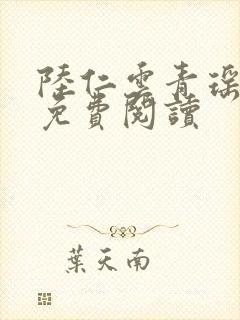 陸仁雲青瑶
免費閱讀
葉天南